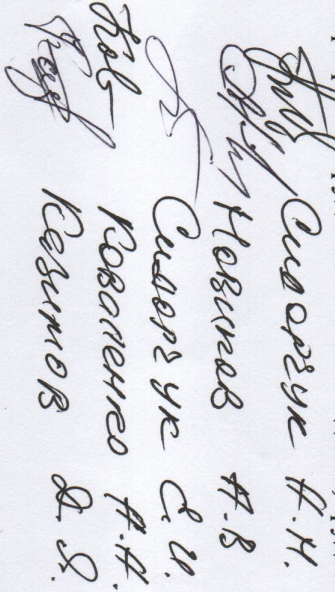 Сидорчук А.Н.
Новиков А.В
Сидорчук С.И.
Коваленко А.А.
Казимов Д.Я.